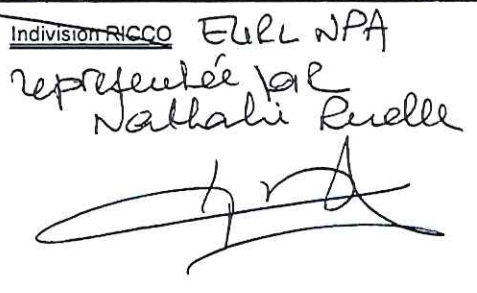 Indivision RICCO EURL NPA
représentée par
Nathalie Ruelle